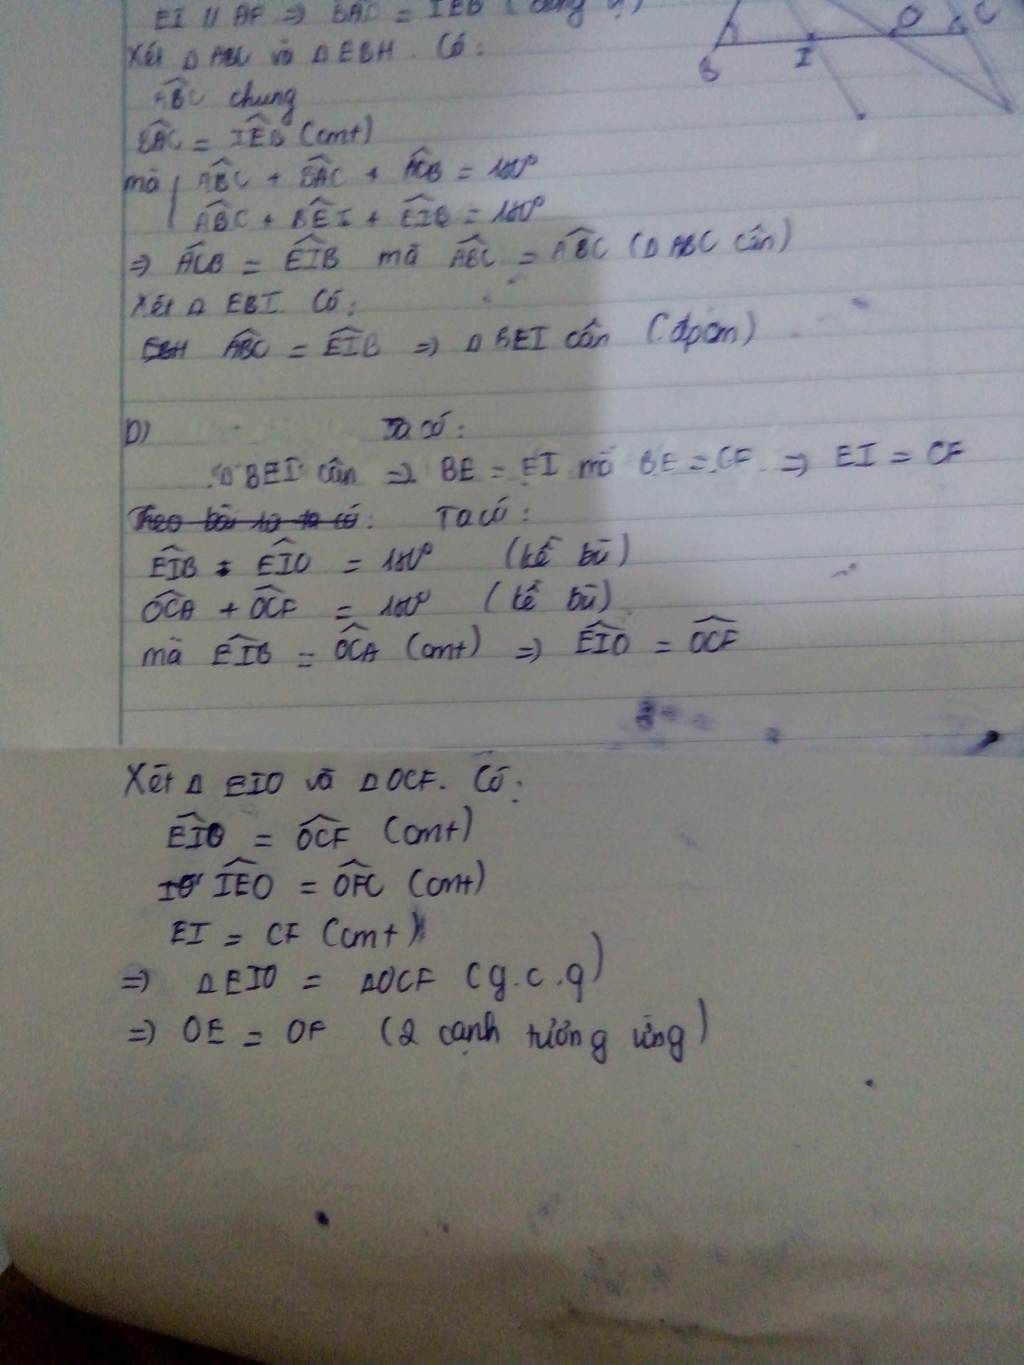 EI // AF => BAC = IEB (đồng vị)
B I O C
Xét Δ ABC và Δ EBH. Có:
ABC chung
BAC = IEB (cmt)
mà ABC + BAC + ACB = 180°
ABC + BEI + EIB = 180°
=> ACB = EIB mà ABC = ABC (Δ ABC cân)
Xét Δ EBI. Có:
ABC = EIB => Δ BEI cân (đpcm)
b) Ta có:
Δ BEI cân => BE = EI mà BE = CF => EI = CF
Theo bài ra ta có: Ta có:
EIB + EIO = 180° (kề bù)
OCA + OCF = 180° (kề bù)
mà EIB = OCA (cmt) => EIO = OCF
Xét Δ EIO và Δ OCF. Có:
EIO = OCF (cmt)
IEO = OFC (cmt)
EI = CF (cmt)
=> Δ EIO = Δ OCF (g.c.g)
=> OE = OF (2 cạnh tương ứng)